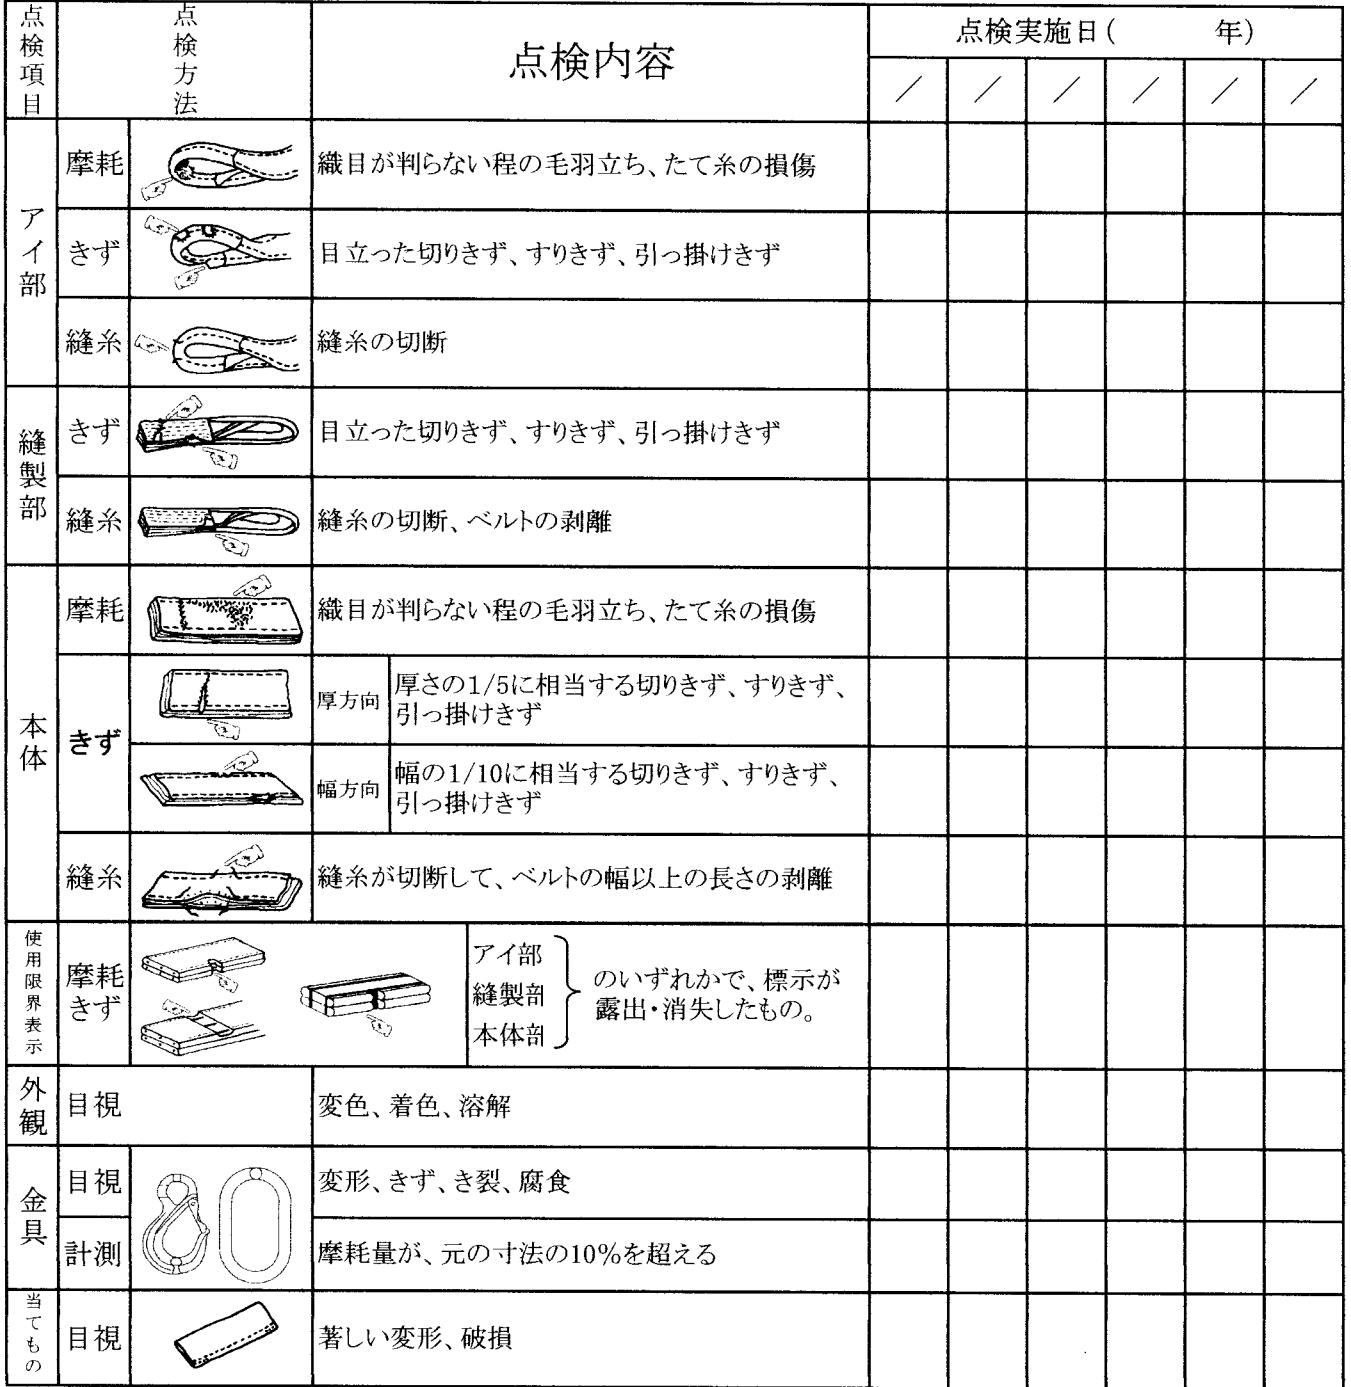 点検項目
点検方法
点検内容
点検実施日(　　　年)
／ ／ ／ ／ ／ ／
アイ部
摩耗
織目が判らない程の毛羽立ち、たて糸の損傷
きず
目立った切りきず、すりきず、引っ掛けきず
縫糸
縫糸の切断
縫製部
きず
目立った切りきず、すりきず、引っ掛けきず
縫糸
縫糸の切断、ベルトの剥離
本体
摩耗
織目が判らない程の毛羽立ち、たて糸の損傷
きず
厚方向
厚さの1/5に相当する切りきず、すりきず、
引っ掛けきず
幅方向
幅の1/10に相当する切りきず、すりきず、
引っ掛けきず
縫糸
縫糸が切断して、ベルトの幅以上の長さの剥離
使用限界表示
摩耗
きず
アイ部
縫製部
本体部
のいずれかで、標示が
露出・消失したもの。
外観
目視
変色、着色、溶解
金具
目視
変形、きず、き裂、腐食
計測
摩耗量が、元の寸法の10%を超える
当てもの
目視
著しい変形、破損